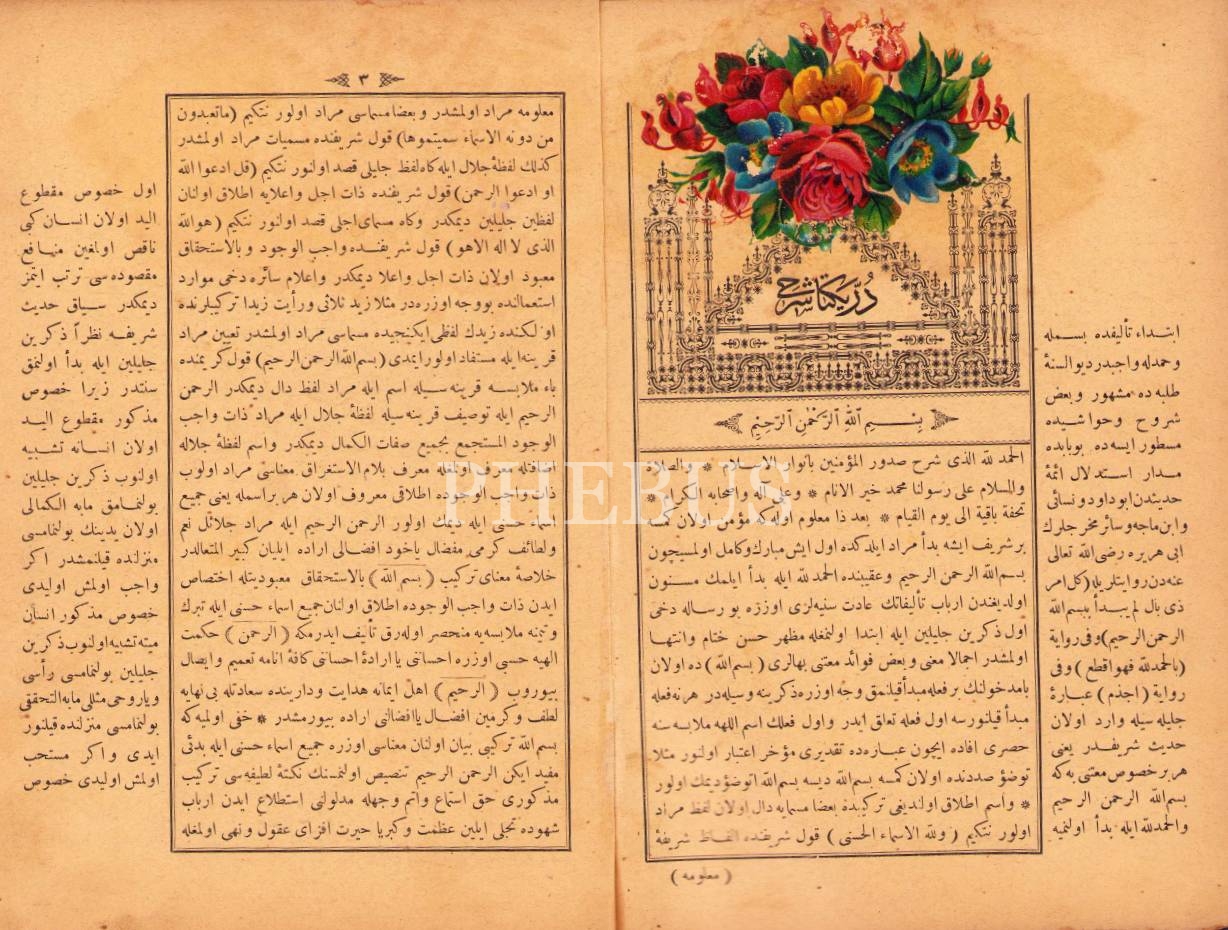 درّ يكتا شرحى
بِسْــــمِ ٱللّٰهِ ٱلرَّحْمٰنِ ٱلرَّحِيْمِ
الحمد لله الذى شرح صدور المؤمنين بانوار الاسلام * والصلاة
والسلام على رسولنا محمد خير الانام * وعلى آله واصحابه الكرام *
تحفة باقية الى يوم القيام * بعد ذا معلوم اوله كه مؤمن اولان كمسه
بر شريف ايشه بدأ مراد ايلدكده اول ايش مبارك وكامل اولمسيچون
بسم الله الرحمن الرحيم وعقيبنده الحمد لله ايله بدأ ايلمك مسنون
اولديغندن ارباب تأليفاتك عادت سنيه لرى اوزره بو رساله دخى
اول ذكرين جليلين ايله ابتدا اولنمغله مظهر حسن ختام وانتها
اولمشدر اجمالا معنى و بعض فوائد معتنى بهالرى ( بسم الله ) ده اولان
بامدخولنك بر فعله مبدأ قيلنمق وجه اوزره ذكرينه وسيله در هر نه فعله
مبدأ قيلنورسه اول فعله تعلق ايدر واول فعلك اسم اللهه ملابسه سنه
حصرى افاده ايچون عباره ده تقديرى مؤخر اعتبار اولنور مثلا
توضؤ صددنده اولان كمسه بسم الله ديسه بسم الله اتوضؤ ديمك اولور
* واسم اطلاق اولنديغى تركيبده بعضا مسمايه دال اولان لفظ مراد
اولور نتكيم ( ولله الاسماء الحسنى ) قول شريفنده الفاظ شريفۀ
( معلومه )
ابتداء تأليفده بسمله
وحمدله واجبدر ديو السنۀ
طلبه ده مشهور وبعض
شروح وحواشيده
مسطور ايسه ده بوبابده
مدار استدلال ائمۀ
حديثدن ابو داود ونسائى
وابن ماجه وسائر مخرجلرك
ابى هريره رضى الله تعالى
عنه دن روايتلريله (كل امر
ذى بال لم يبدأ ببسم الله
الرحمن الرحيم) وفى رواية
(بالحمد لله فهو اقطع ) وفى
رواية ( اجذم ) عبارۀ
جليله سيله وارد اولان
حديث شريفدر يعنى
هر بر خصوص معتنى به كه
بسم الله الرحمن الرحيم
والحمد لله ايله بدأ اولنميه
٣
معلومه مراد اولمشدر و بعضا مسماسى مراد اولور نتكيم (ماتعبدون
من دونه الا اسماء سميتموها) قول شريفنده مسميات مراد اولمشدر
كذلك لفظۀ جلال ايله كاه لفظ جليلى قصد اولنور نتكيم (قل ادعوا الله
او ادعوا الرحمن) قول شريفنده ذات اجل واعلايه اطلاق اولنان
لفظين جليلين ديمكدر وكاه مسماى اجلى قصد اولنور نتكيم (هو الله
الذى لا اله الا هو ) قول شريفنده واجب الوجود و بالاستحقاق
معبود اولان ذات اجل واعلا ديمكدر واعلام سائره دخى موارد
استعمالنده بو وجه اوزره در مثلا زيد ثلاثى ورأيت زيدا تركيبلرنده
اولكنده زيدك لفظى ايكينجيده مسماسى مراد اولمشدر تعيين مراد
قرينه ايله مستفاد اولور ايمدى (بسم الله الرحمن الرحيم) قول كريمنده
باء ملابسه قرينه سيله اسم ايله مراد لفظ دال ديمكدر الرحمن
الرحيم ايله توصيف قرينه سيله لفظۀ جلال ايله مراد ذات واجب
الوجود المستجمع بجميع صفات الكمال ديمكدر واسم لفظۀ جلاله
اضافتله معرف اولمغله معرف بلام الاستغراق معناسى مراد اولوب
ذات واجب الوجوده اطلاقى معروف اولان هر بر اسمله يعنى جميع
اسماء حسنى ايله ديمك اولور الرحمن الرحيم ايله مراد جلائل نعم
ولطائف كرمى مفضال ياخود افضالى اراده ايليان كبير المتعالدر
خلاصۀ معناى تركيب ( بسم الله ) بالاستحقاق معبوديتله اختصاص
ايدن ذات واجب الوجوده اطلاق اولنان جميع اسماء حسنى ايله تبرك
وتيمنه ملابسه يه منحصر اوله رق تأليف ايدرمكه ( الرحمن ) حكمت
الهيه حسبى اوزره احسانى يا ارادۀ احسانى كافۀ انامه تعميم وايصال
بيوروب ( الرحيم ) اهل ايمانه هدايت ودارينده سعادتله بى نهايه
لطف وكرمين افضال يا افضالنى اراده بيورمشدر * خفى اولميه كه
بسم الله تركيبى بيان اولنان معناسى اوزره جميع اسماء حسنى ايله بدئى
مفيد ايكن الرحمن الرحيم تنصيص اولنمسنك نكتۀ لطيفه سى تركيب
مذكورى حق استماع واتم وجهله مدلولنى استطلاع ايدن ارباب
شهوده تجلى ايلين عظمت وكبريا حيرت افزاى عقول ونهى اولمغله
اول خصوص مقطوع
اليد اولان انسان كبى
ناقص اولغين منافع
مقصوده سى ترتب ايتمز
ديمكدر سياق حديث
شريفه نظراً ذكرين
جليلين ايله بدأ اولنمق
سنتدر زيرا خصوص
مذكور مقطوع اليد
اولان انسانه تشبيه
اولنوب ذكرين جليلين
بولنمامق مابه الكمالى
اولان يدينك بولنمامسى
منزلنده قيلنمشدر اكر
واجب اولمش اوليدى
خصوص مذكور انسان
ميته تشبيه اولنوب ذكرين
جليلين بولنمامسى رأسى
وياروحى مثللى مابه التحققى
بولنمامسى منزلنده قيلنور
ايدى واكر مستحب
اولمش اوليدى خصوص
PHEBUS